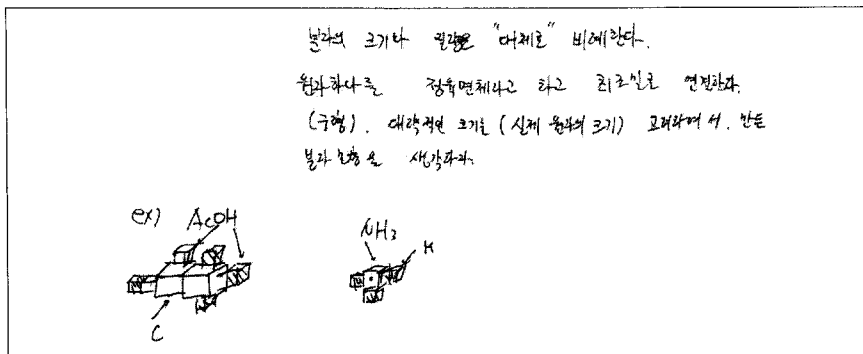 분자의 크기와 질량은 "대체로" 비례한다.
원자하나를 정육면체라고 하고 최조밀로 연결한다.
(구형). 대략적인 크기를 (실제 원자의 크기) 고려하여서. 만든
분자 모형을 생각하자.
ex) AcOH
NH3
H
C